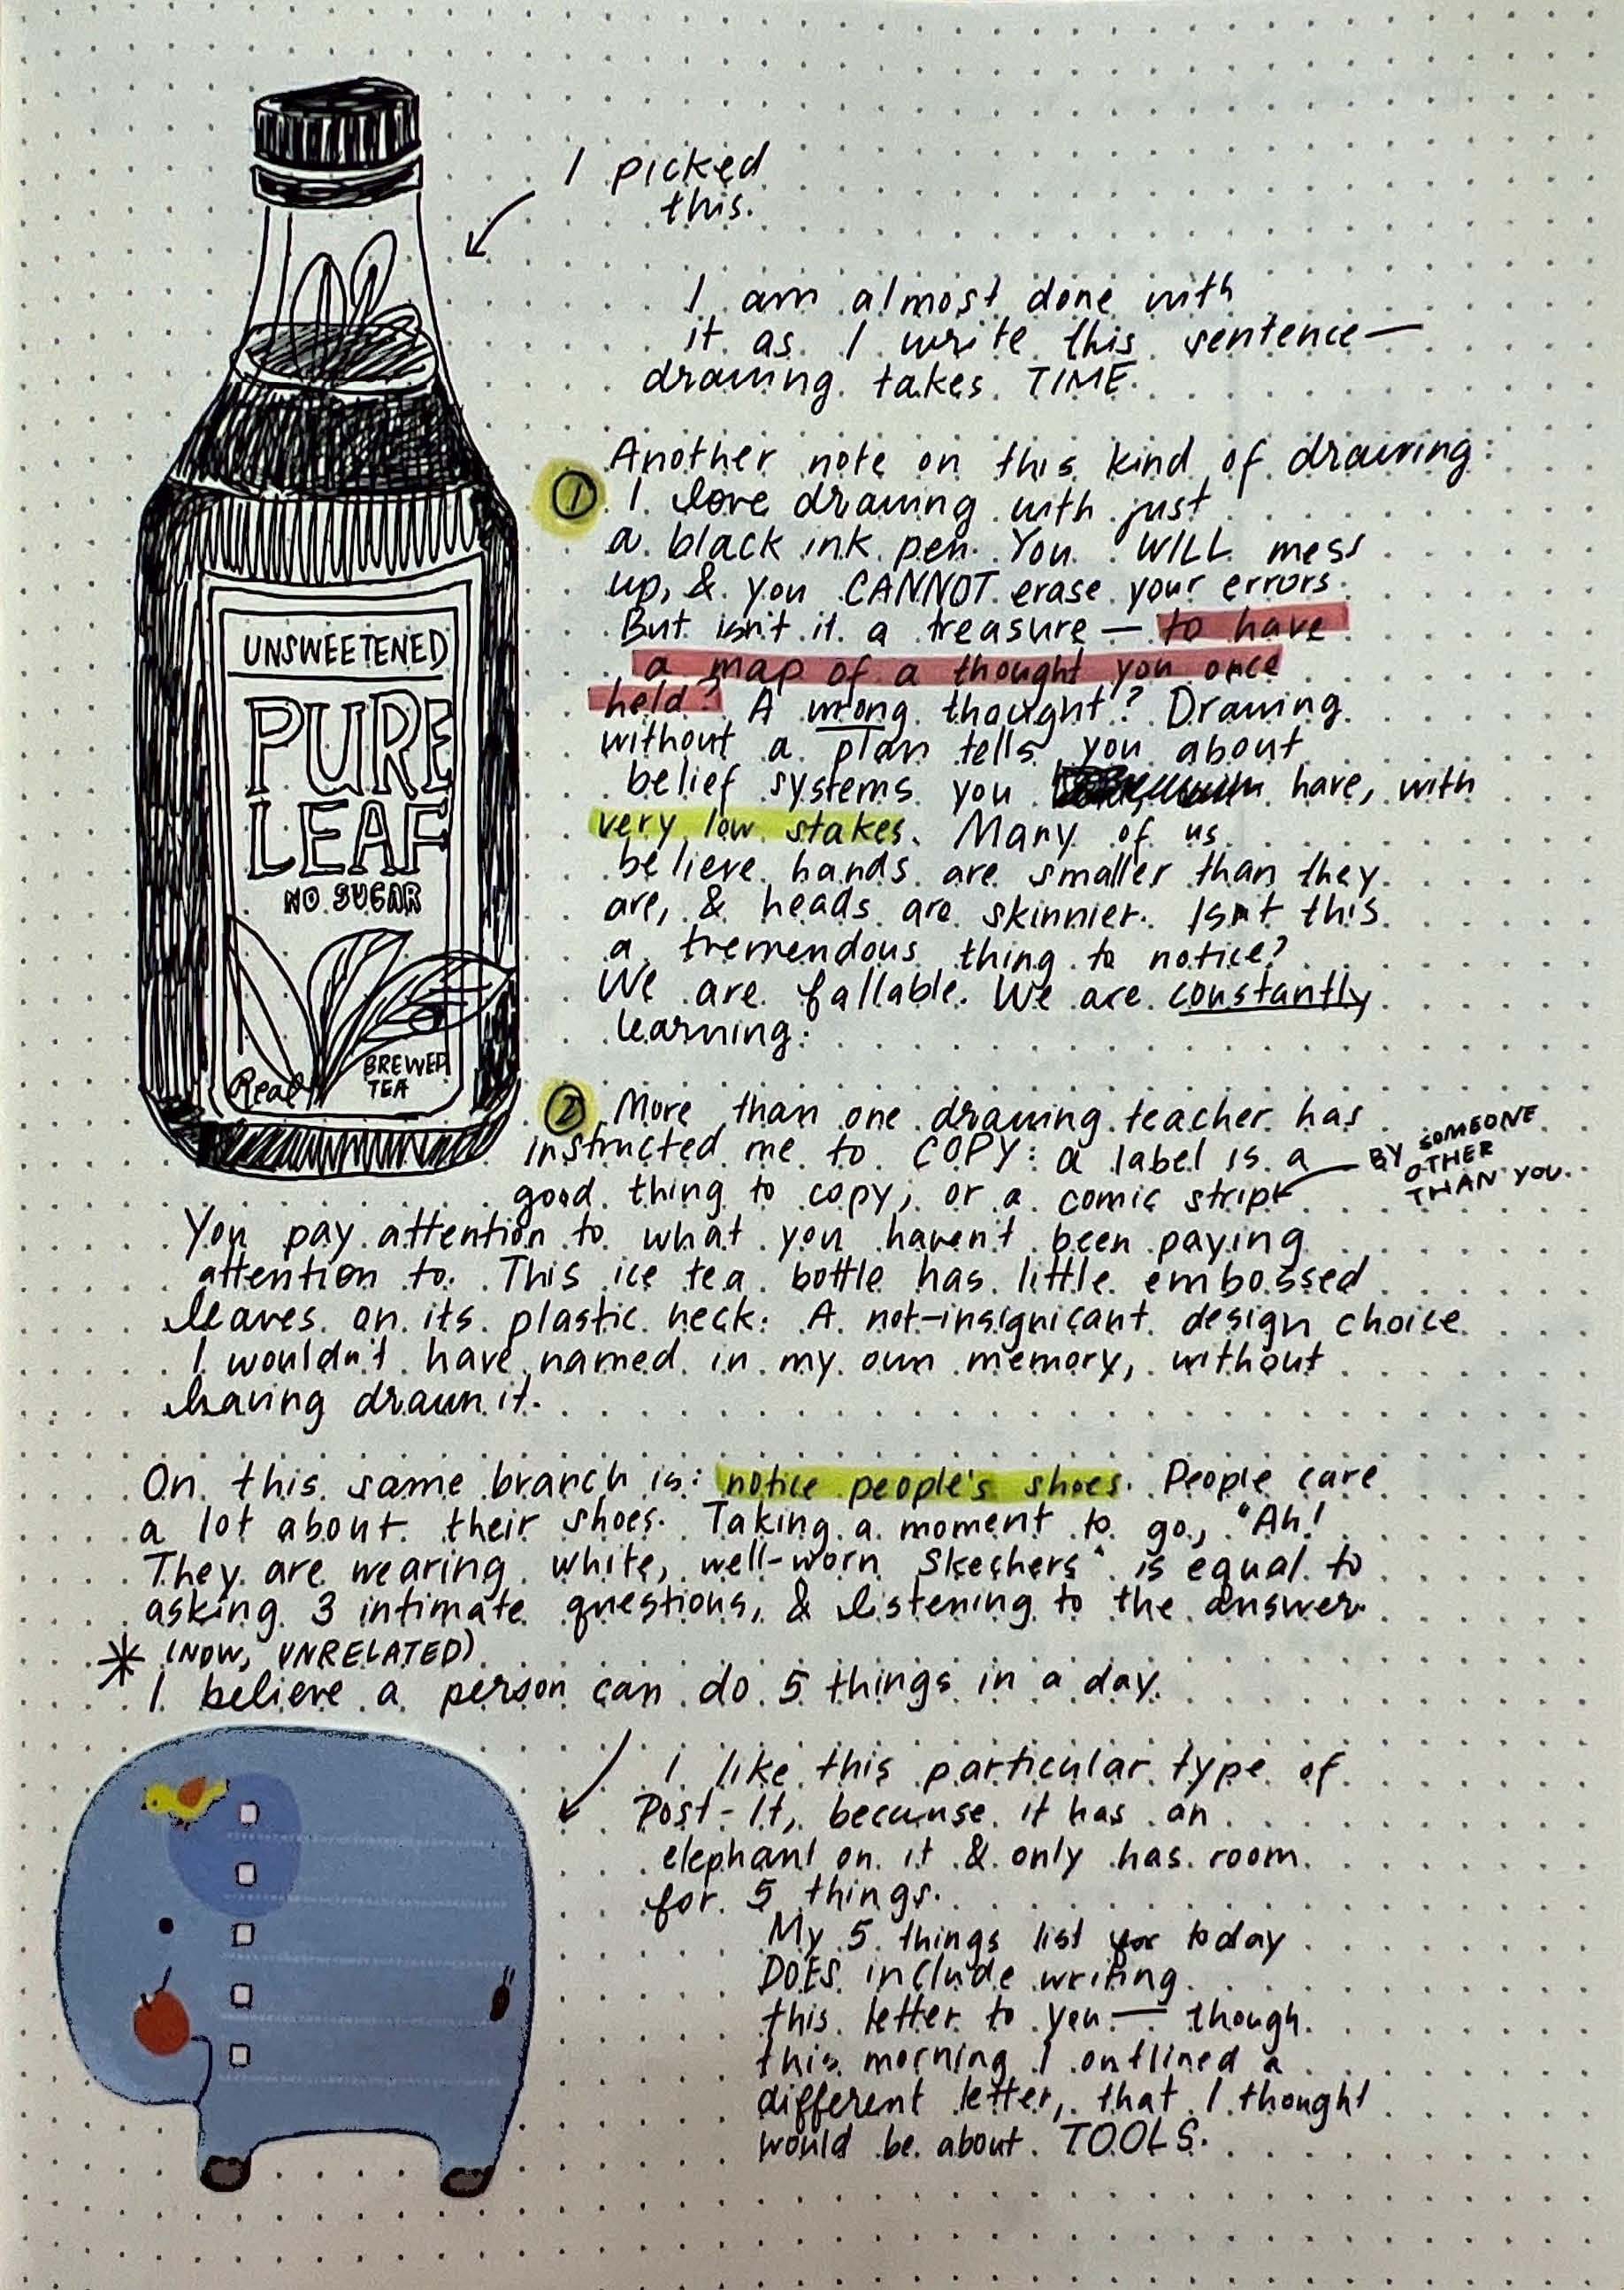 I picked
this.
I am almost done with
it as I write this sentence—
drawing takes TIME.
Another note on this kind of drawing:
① I love drawing with just
a black ink pen. You WILL mess
up, & you CANNOT erase your errors.
But isn't it a treasure — to have
a map of a thought you once
held? A wrong thought? Drawing
without a plan tells you about
belief systems you have, with
very low stakes. Many of us
believe hands are smaller than they
are, & heads are skinnier. Isn't this
a tremendous thing to notice?
We are fallable. We are constantly
learning.
UNSWEETENED
PURE
LEAF
NO SUGAR
Real BREWED
TEA
② More than one drawing teacher has
instructed me to COPY: a label is a
good thing to copy, or a comic strip
BY SOMEONE
OTHER
THAN YOU.
You pay attention to what you haven't been paying
attention to. This ice tea bottle has little embossed
leaves on its plastic neck. A not-insignicant design choice
I wouldn't have named in my own memory, without
having drawn it.
On this same branch is: notice people's shoes. People care
a lot about their shoes. Taking a moment to go, "Ah!
They are wearing white, well-worn Skechers" is equal to
asking 3 intimate questions, & listening to the answer.
* (NOW, UNRELATED)
I believe a person can do 5 things in a day.
I like this particular type of
Post-It, because it has an
elephant on it & only has room
for 5 things.
My 5 things list for today
DOES include writing
this letter to you — though
this morning I outlined a
different letter, that I thought
would be about TOOLS.